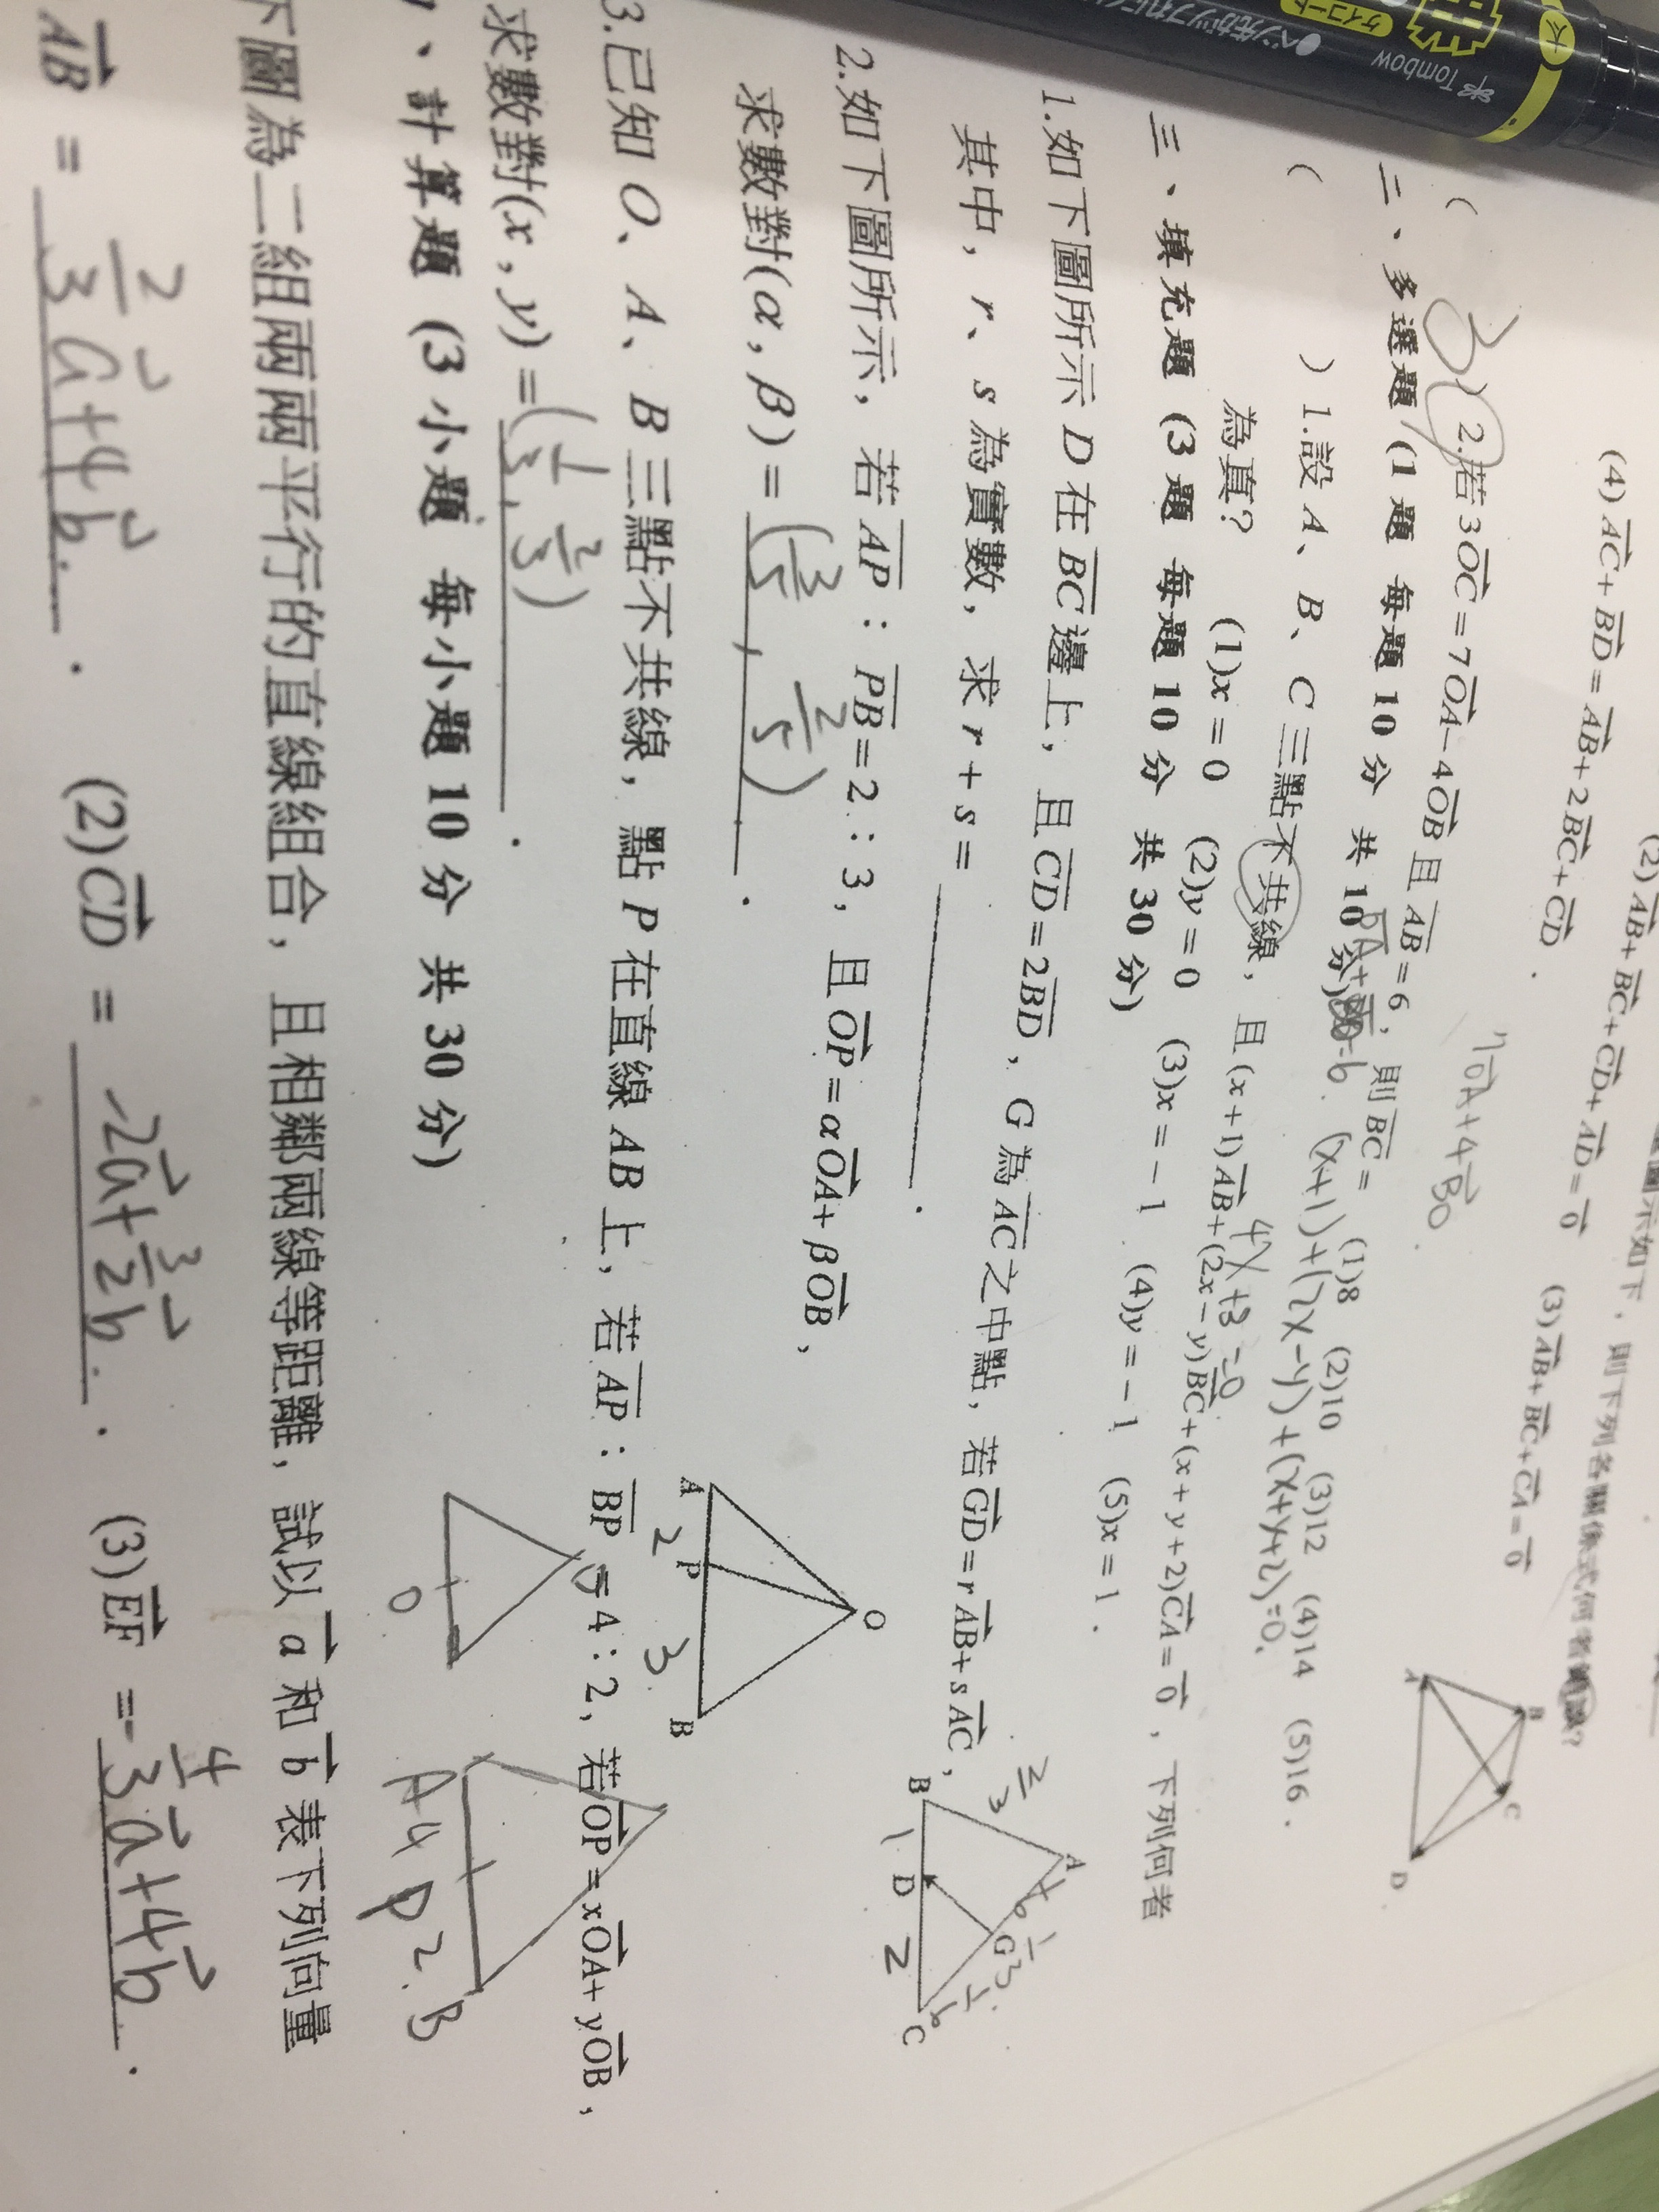 (2) AB + BC + CD + AD = 0
圖示如下，則下列各關係式何者錯誤?
(3) AB + BC + CA = 0
(4) AC + BD = AB + 2BC + CD .
A B C D
7OA + 4BO
( 3 ) 2.若 3OC = 7OA − 4OB 且 AB = 6，則 BC = (1)8 (2)10 (3)12 (4)14 (5)16 .
二、多選題 (1 題 每題 10 分 共 10 分)
(x+1)+(2x−y)+(x+y+2)=0.
4x+3=0
( ) 1.設 A、B、C 三點不共線，且 (x+1)AB + (2x−y)BC + (x+y+2)CA = 0，下列何者
為真? (1)x = 0 (2)y = 0 (3)x = −1 (4)y = −1 (5)x = 1 .
三、填充題 (3 題 每題 10 分 共 30 分)
1.如下圖所示 D 在 BC 邊上，且 CD = 2BD，G 為 AC 之中點，若 GD = r AB + s AC，
其中，r、s 為實數，求 r + s = .
A B D C G
1 2
2.如下圖所示，若 AP : PB = 2 : 3，且 OP = αOA + βOB，
求數對(α , β) = (3/5 , 2/5) .
O A P B
2 3
3.已知 O、A、B 三點不共線，點 P 在直線 AB 上，若 AP : BP = 4 : 2，若 OP = xOA + yOB，
求數對(x , y) = (1/3, 2/3) .
O
A 4 P 2. B
、計算題 (3 小題 每小題 10 分 共 30 分)
下圖為二組兩兩平行的直線組合，且相鄰兩線等距離，試以 a 和 b 表下列向量
AB = 2/3 a + 4b. . (2)CD = −2a + 3/2 b. . (3)EF = −4/3 a + 4b .
Tombow
ケイコート